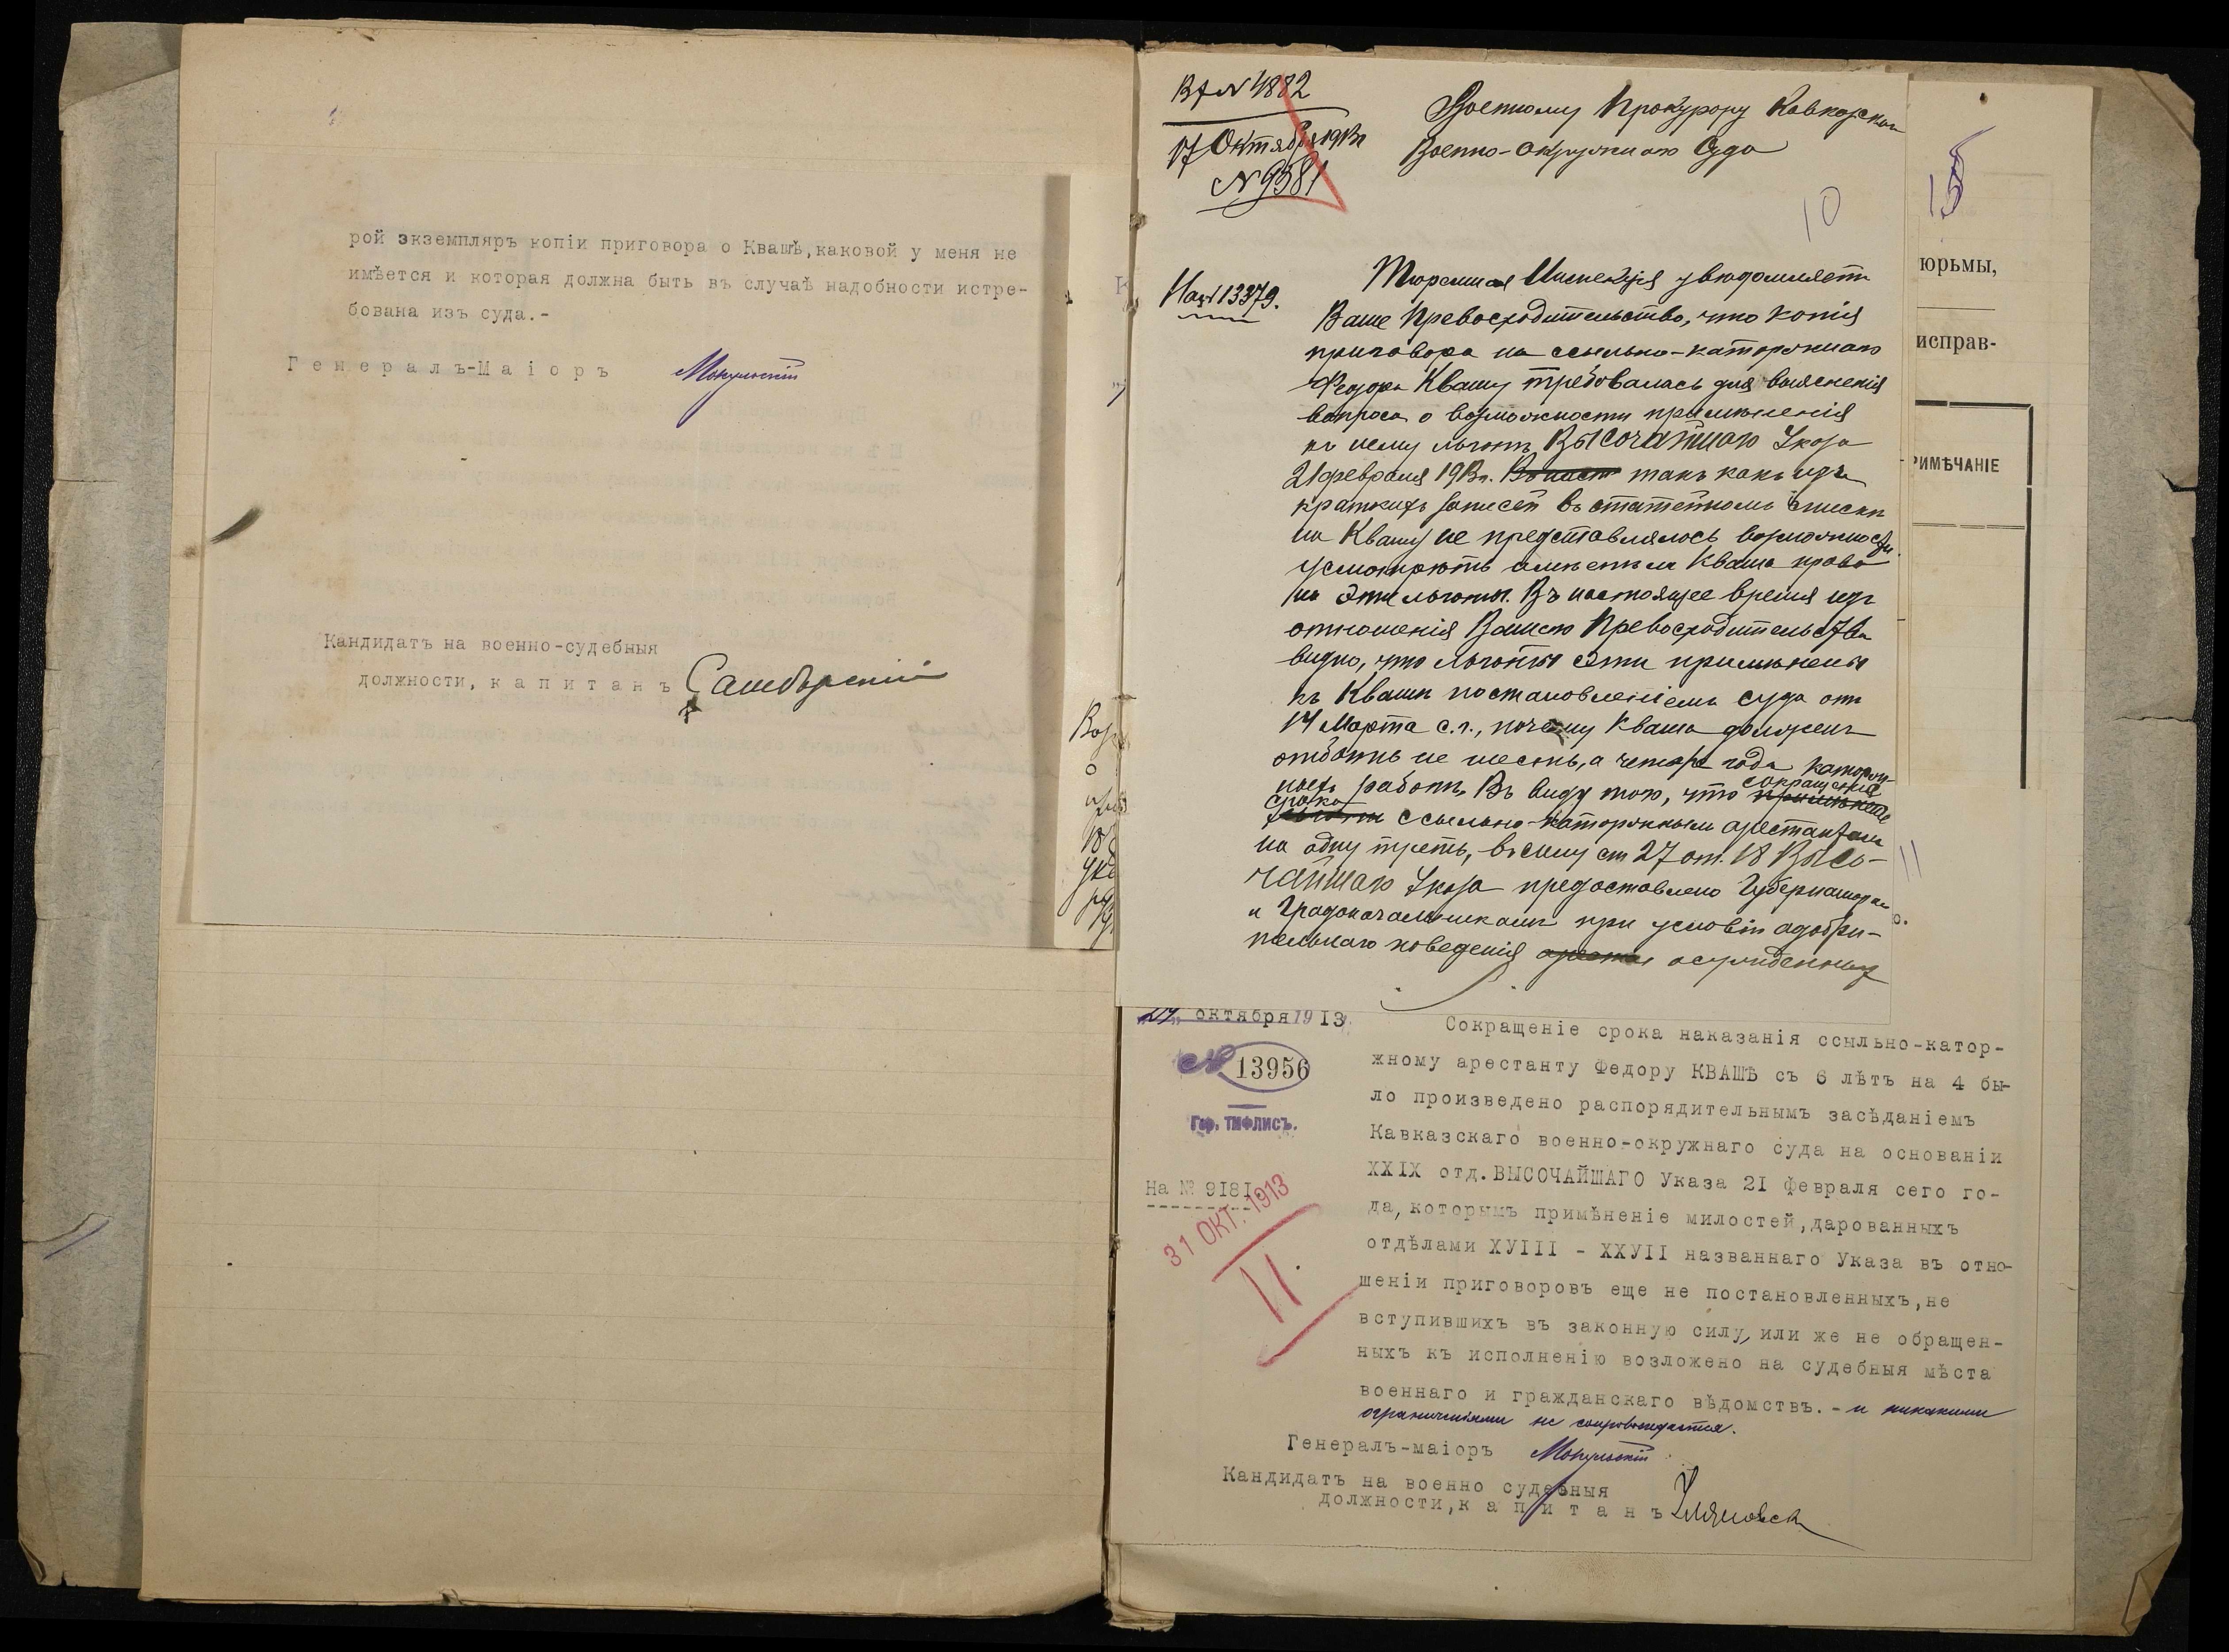 рой экземпляръ копіи приговора о Квашѣ,каковой у меня не
имѣется и которая должна быть въ случаѣ надобности истре-
бована изъ суда.-
Генералъ-Маіоръ
Кандидатъ на военно-судебныя
должности, капитанъ
17 Октября 1913 г.
Военному Прокурору Кавказскаго
Военно-Окружнаго Суда
10
15
На № 13379.
Тюремная Инспекція увѣдомляетъ
Ваше Превосходительство, что копія
приговора на ссыльно-каторжнаго
Федора Квашу требовалась для выясненія
вопроса о возможности примѣненія
къ нему льготъ ВЫСОЧАЙШАГО Указа
21 февраля 1913 г. такъ какъ изъ
краткихъ записей въ статейномъ спискѣ
на Квашу не представлялось возможности
усмотрѣть имѣетъ ли Кваша право
на эти льготы. Въ настоящее время изъ
отношенія Вашего Превосходительства
видно, что льготы эти примѣнены
къ Квашѣ постановленіемъ суда отъ
14 Марта с.г., почему Кваша долженъ
отбыть не шесть, а четыре года каторж-
ныхъ работъ. Въ виду того, что сокращеніе
срока ссыльно-каторжнымъ арестантамъ
на одну треть, въ силу ст 27 от. 18 Высо-
чайшаго Указа предоставлено Губернаторамъ
и Градоначальникамъ при условіи одобри-
тельнаго поведенія осужденныхъ
юрьмы,
исправ-
РИМѢЧАНІЕ
11
октября 1913
№ 13956
Гор. ТИФЛИСЪ.
На № 9181
31 ОКТ. 1913
11.
Сокращеніе срока наказанія ссыльно-катор-
жному арестанту Федору КВАШѢ съ 6 лѣтъ на 4 бы-
ло произведено распорядительнымъ засѣданіемъ
Кавказскаго военно-окружнаго суда на основаніи
XXIX отд.ВЫСОЧАЙШАГО Указа 21 февраля сего го-
да,которымъ примѣненіе милостей,дарованныхъ
отдѣлами ХУІІІ - ХХУІІ названнаго Указа въ отно-
шеніи приговоровъ еще не постановленныхъ,не
вступившихъ въ законную силу, или же не обращен-
ныхъ къ исполненію возложено на судебныя мѣста
военнаго и гражданскаго вѣдомствъ.- и никакими
ограниченіями не сопровождается.
Генералъ-маіоръ
Кандидатъ на военно судебныя
должности,капитанъ